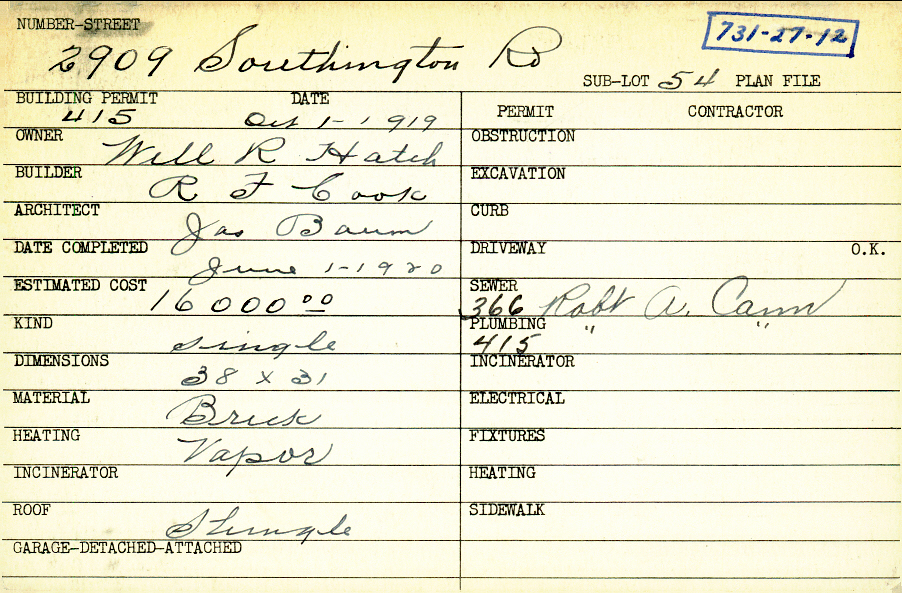 NUMBER-STREET
2909 Southington Rd
731-27-12
SUB-LOT 54 PLAN FILE
BUILDING PERMIT DATE
415 Oct 1-1919
OWNER
Will R Hatch
BUILDER
R F Cook
ARCHITECT
Jas Baum
DATE COMPLETED
June 1-1920
ESTIMATED COST
16000 00
KIND
single
DIMENSIONS
38 x 31
MATERIAL
Brick
HEATING
Vapor
INCINERATOR
ROOF
Shingle
GARAGE-DETACHED-ATTACHED
PERMIT CONTRACTOR
OBSTRUCTION
EXCAVATION
CURB
DRIVEWAY O.K.
SEWER
366 Robt A. Cann
PLUMBING " "
415
INCINERATOR
ELECTRICAL
FIXTURES
HEATING
SIDEWALK